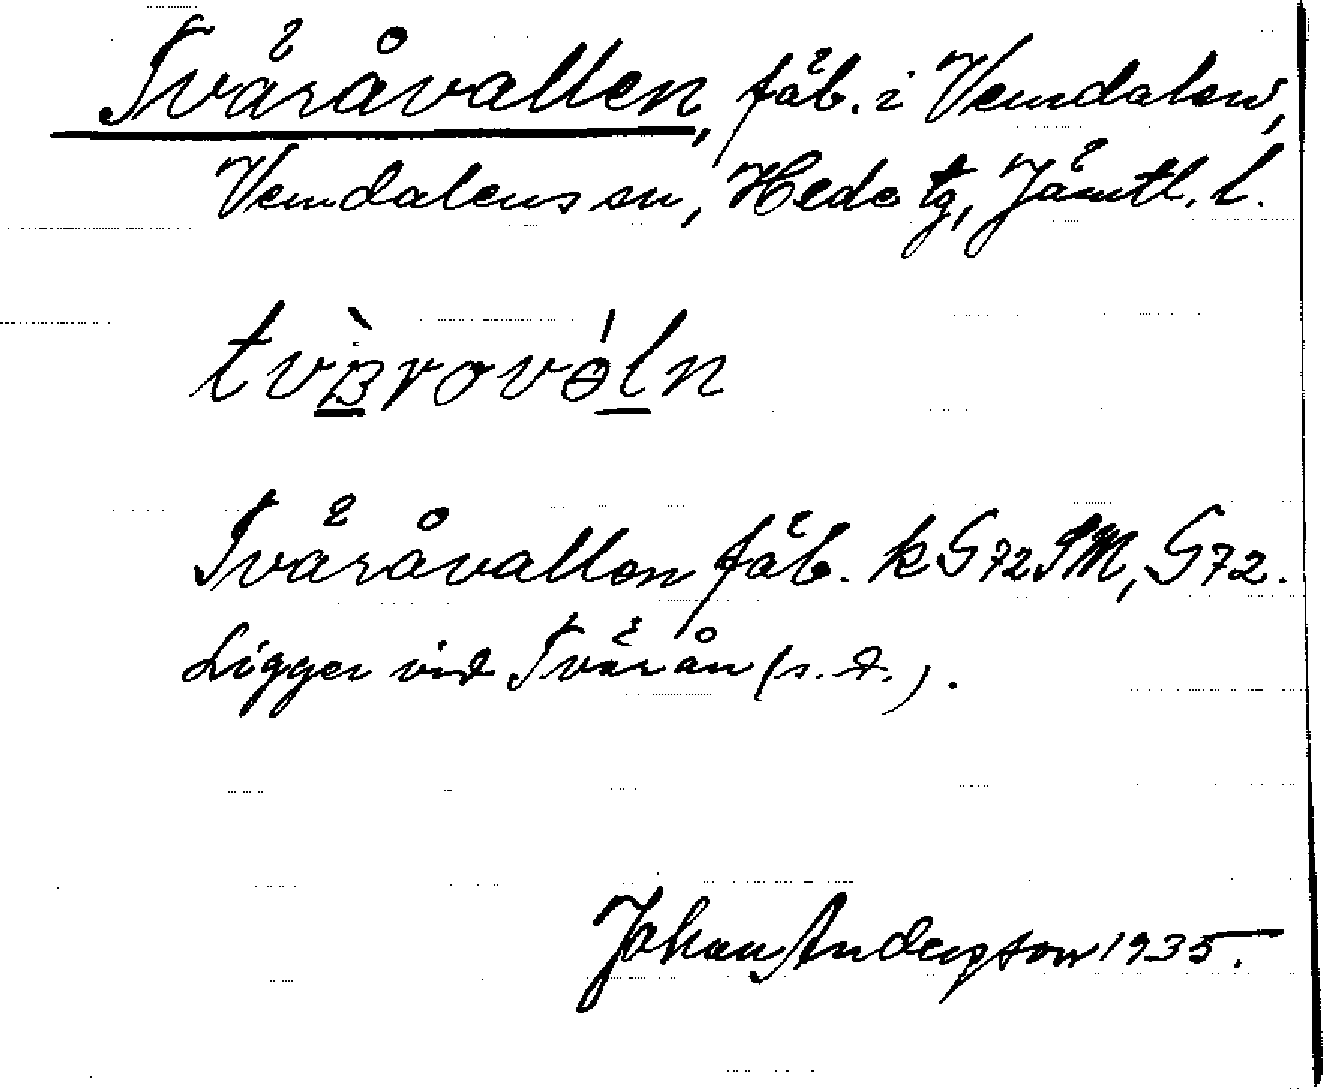 Tväråvallen, fäb. i Vemdalen,
Vemdalens sn, Hede tg, Jämtl. l.
Tväråvallen fäb. k G72SM, G72.
Ligger vid Tvärån (s. d.).
Johan Anderson 1935.